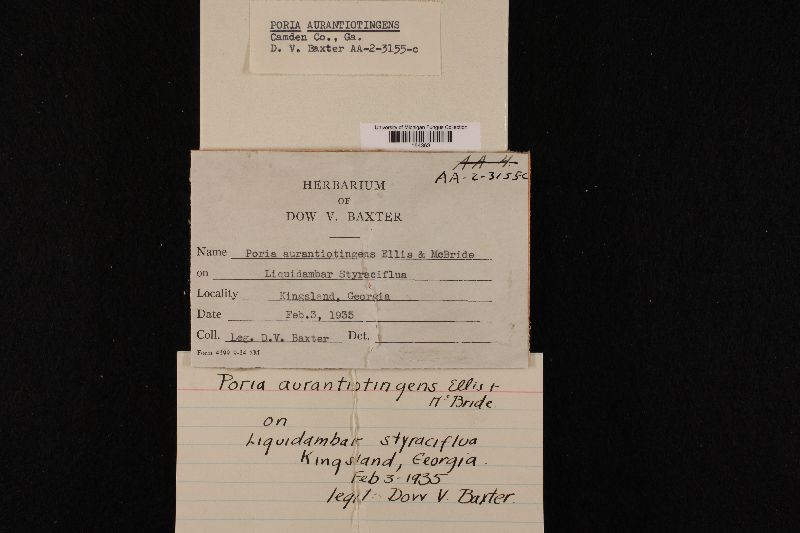 PORIA AURANTIOTINGENS
Camden Co., Ga.
D. V. Baxter AA-2-3155-c
University of Michigan Fungus Collection
AA 4
AA-2-3155c
HERBARIUM
OF
DOW V. BAXTER
Name Poria aurantiotingens Ellis & McBride
on Liquidambar Styraciflua
Locality Kingsland, Georgia
Date Feb.3, 1935
Coll. Leg. D.V. Baxter Det.
Form 4399 9-34 5M
Poria aurantiotingens Ellis &
McBride
on
Liquidambar styraciflua
Kingsland, Georgia.
Feb 3-1935
legit- Dow V. Baxter.